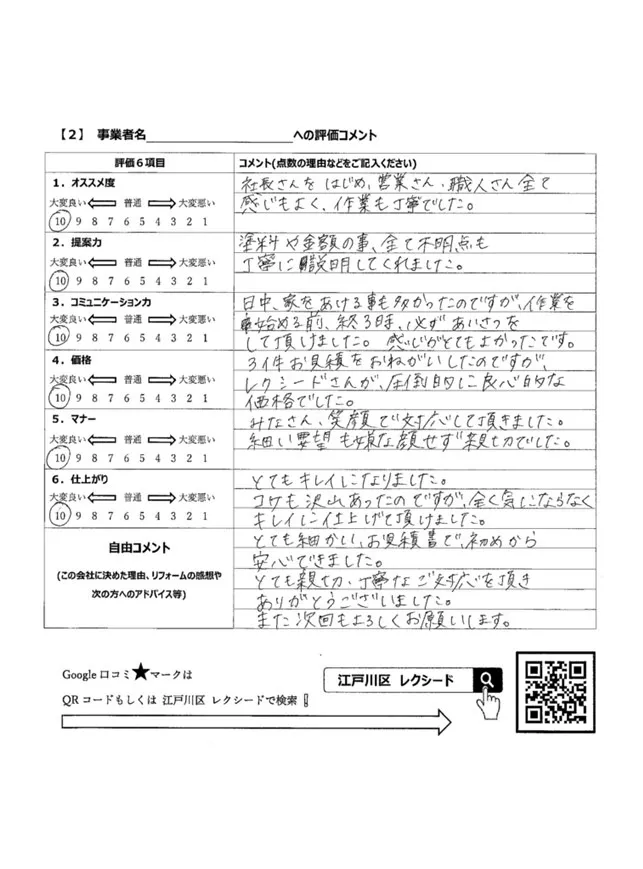 【2】 事業者名 への評価コメント
評価6項目 コメント(点数の理由などをご記入ください)
1．オススメ度
大変良い 普通 大変悪い
10 9 8 7 6 5 4 3 2 1
社長さんを はじめ、営業さん、職人さん全て
感じもよく、作業も丁寧でした。
2．提案力
大変良い 普通 大変悪い
10 9 8 7 6 5 4 3 2 1
塗料や金額の事、全て不明点も
丁寧に説明してくれました。
3．コミュニケーション力
大変良い 普通 大変悪い
10 9 8 7 6 5 4 3 2 1
日中、家をあける事も多かったのですが、作業を
始める前、終る時、必ずあいさつを
して頂けました。 感じがとてもよかったです。
4．価格
大変良い 普通 大変悪い
10 9 8 7 6 5 4 3 2 1
3件お見積をおねがいしたのですが、
レクシードさんが、圧倒的に良心的な
価格でした。
5．マナー
大変良い 普通 大変悪い
10 9 8 7 6 5 4 3 2 1
みなさん、笑顔で対応して頂きました。
細い要望も嫌な顔せず親切でした。
6．仕上がり
大変良い 普通 大変悪い
10 9 8 7 6 5 4 3 2 1
とてもキレイになりました。
コケも沢山あったのですが、全く気にならなく
キレイに仕上げて頂けました。
自由コメント
(この会社に決めた理由、リフォームの感想や
次の方へのアドバイス等)
とても細かい、お見積書で、初めから
安心できました。
とても親切、丁寧なご対応を頂き
ありがとうございました。
また次回もよろしくお願いします。
Google口コミ★マークは
QRコードもしくは 江戸川区 レクシードで検索！
江戸川区 レクシード